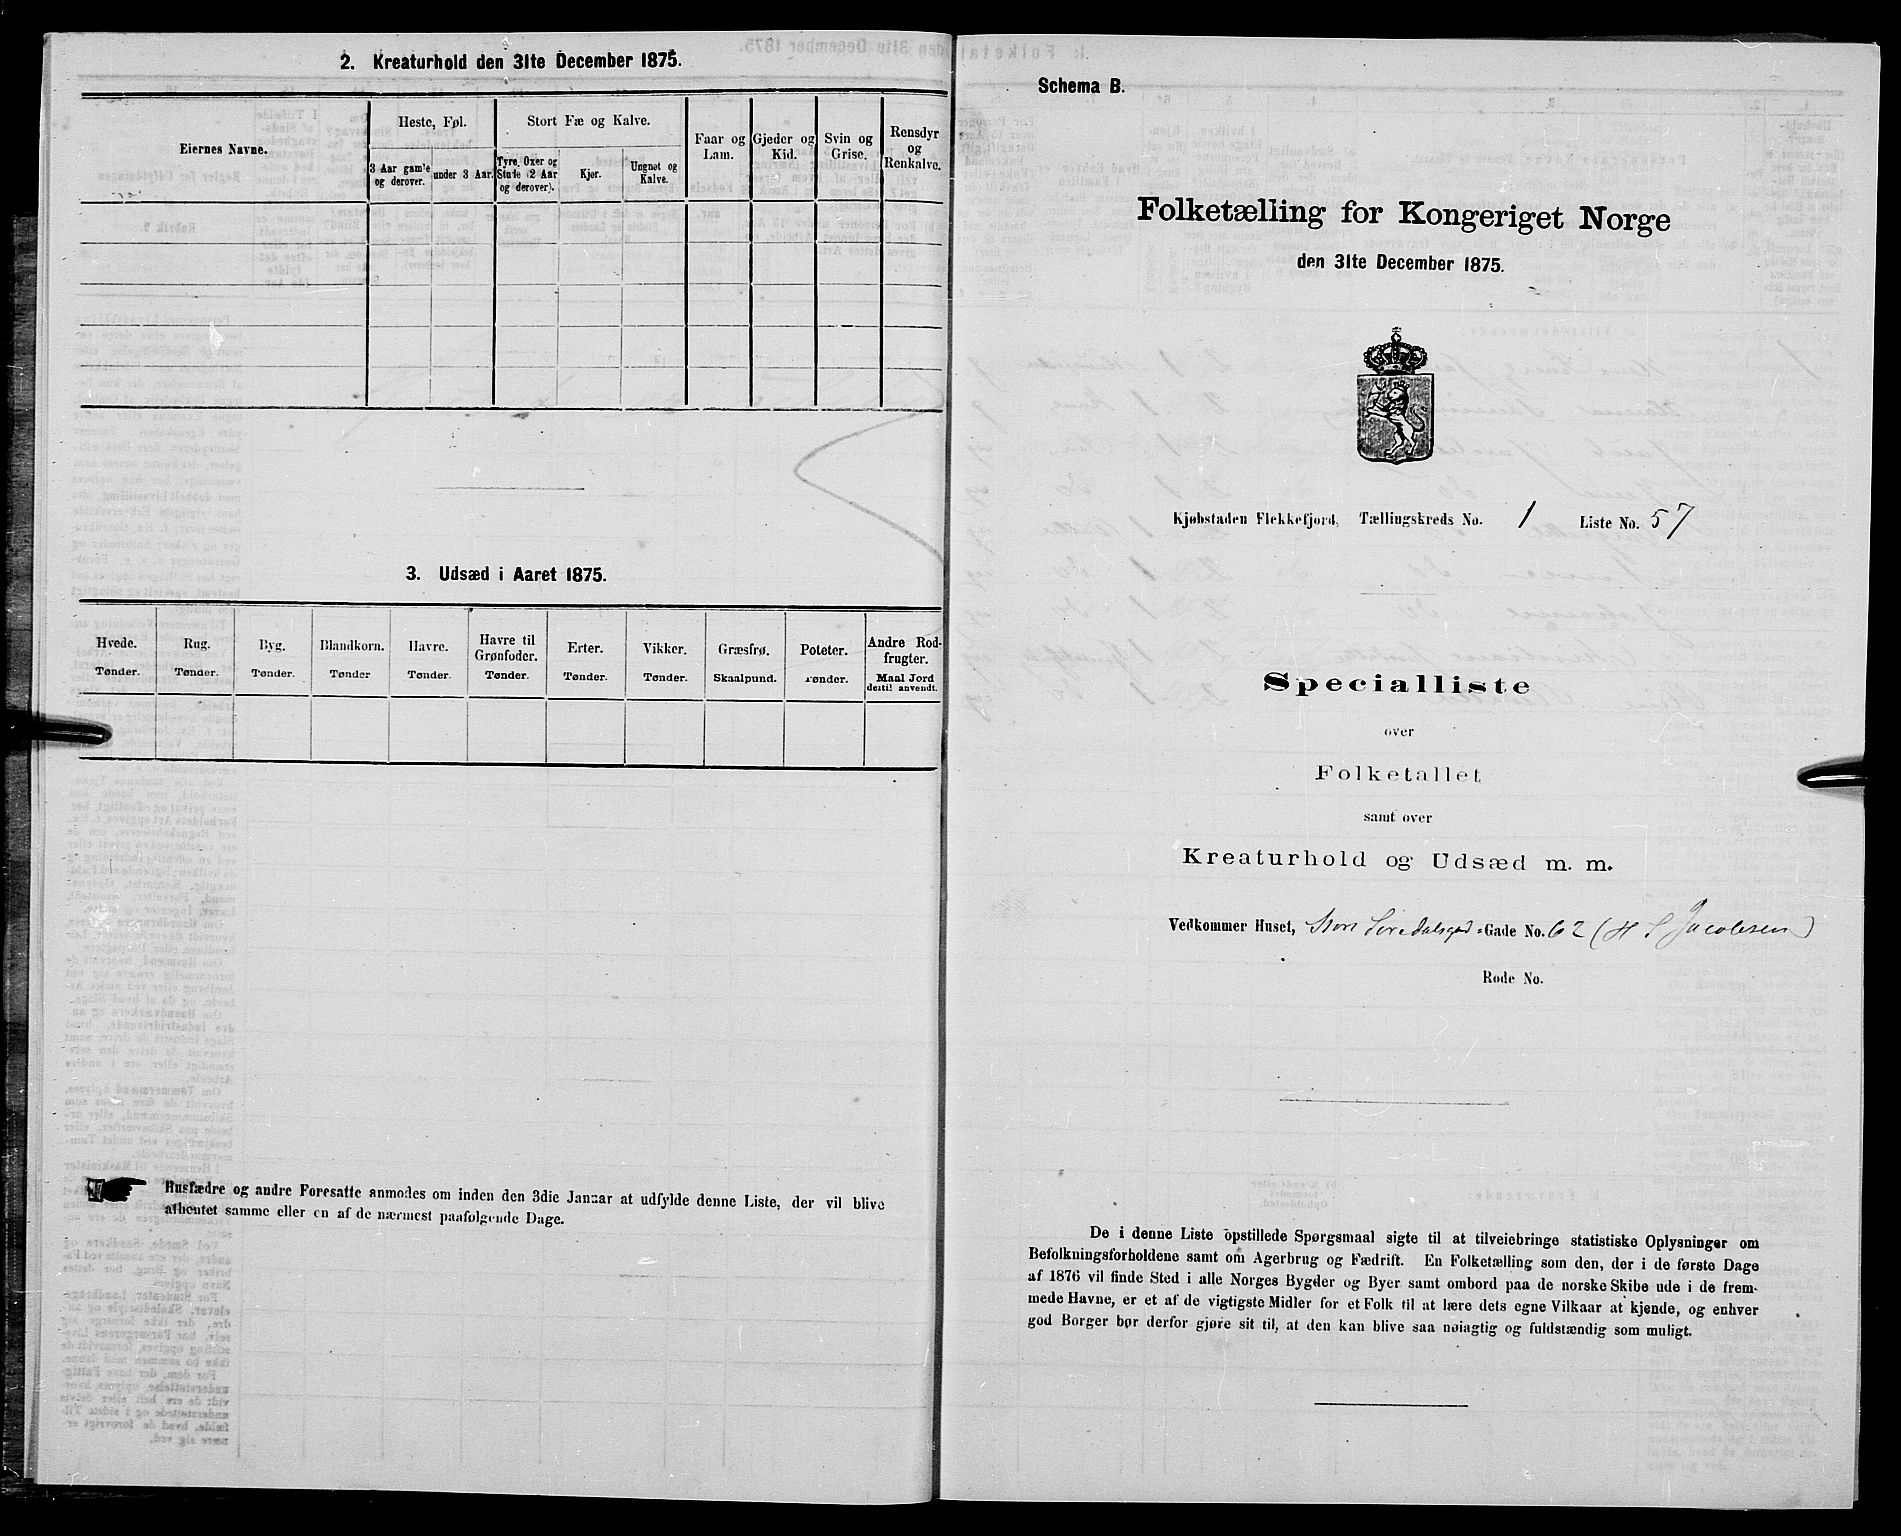 2. Kreaturhold den 31te December 1875.
Eiernes Navne.
Heste, Føl.
3 Aar gamle
og derover.
under 3 Aar.
Stort Fæ og Kalve.
Tyre, Oxer og
Stude (2 Aar
og derover).
Kjør.
Ungnøt og
Kalve.
Faar og
Lam.
Gjeder og
Kid.
Svin og
Grise.
Rensdyr
og
Renkalve.
3. Udsæd i Aaret 1875.
Hvede.
Tønder.
Rug.
Tønder.
Byg.
Tønder.
Blandkorn.
Tønder
Havre.
Tønder.
Havre til
Grønfoder.
Tønder.
Erter.
Tønder.
Vikker.
Tønder.
Græsfrø.
Skaalpund.
Poteter.
Tønder.
Andre Rod-
frugter.
Maal Jord
dertil anvendt.
Husfædre og andre Foresatte anmodes om inden den 3die Januar at udfylde denne Liste, der vil blive
afhentet samme eller en af de nærmest paafølgende Dage.
Schema B.
Folketælling for Kongeriget Norge
den 31te December 1875.
Kjøbstaden Flekkefjord, Tællingskreds No. 1 Liste No. 57
Specialliste
over
Folketallet
samt over
Kreaturhold og Udsæd m. m.
Vedkommer Huset, Gade No. 62 (H S Jacobsen)
Rode No.
De i denne Liste opstillede Spørgsmaal sigte til at tilveiebringe statistiske Oplysninger om
Befolkningsforholdene samt om Agerbrug og Fædrift. En Folketælling som den, der i de første Dage
af 1876 vil finde Sted i alle Norges Bygder og Byer samt ombord paa de norske Skibe ude i frem-
mede Havne, er et af de vigtigste Midler for et Folk til at lære dets egne Vilkaar at kjende, og enhver
god Borger bør derfor gjøre sit til, at den kan blive saa nøiagtig og fuldstændig som muligt.